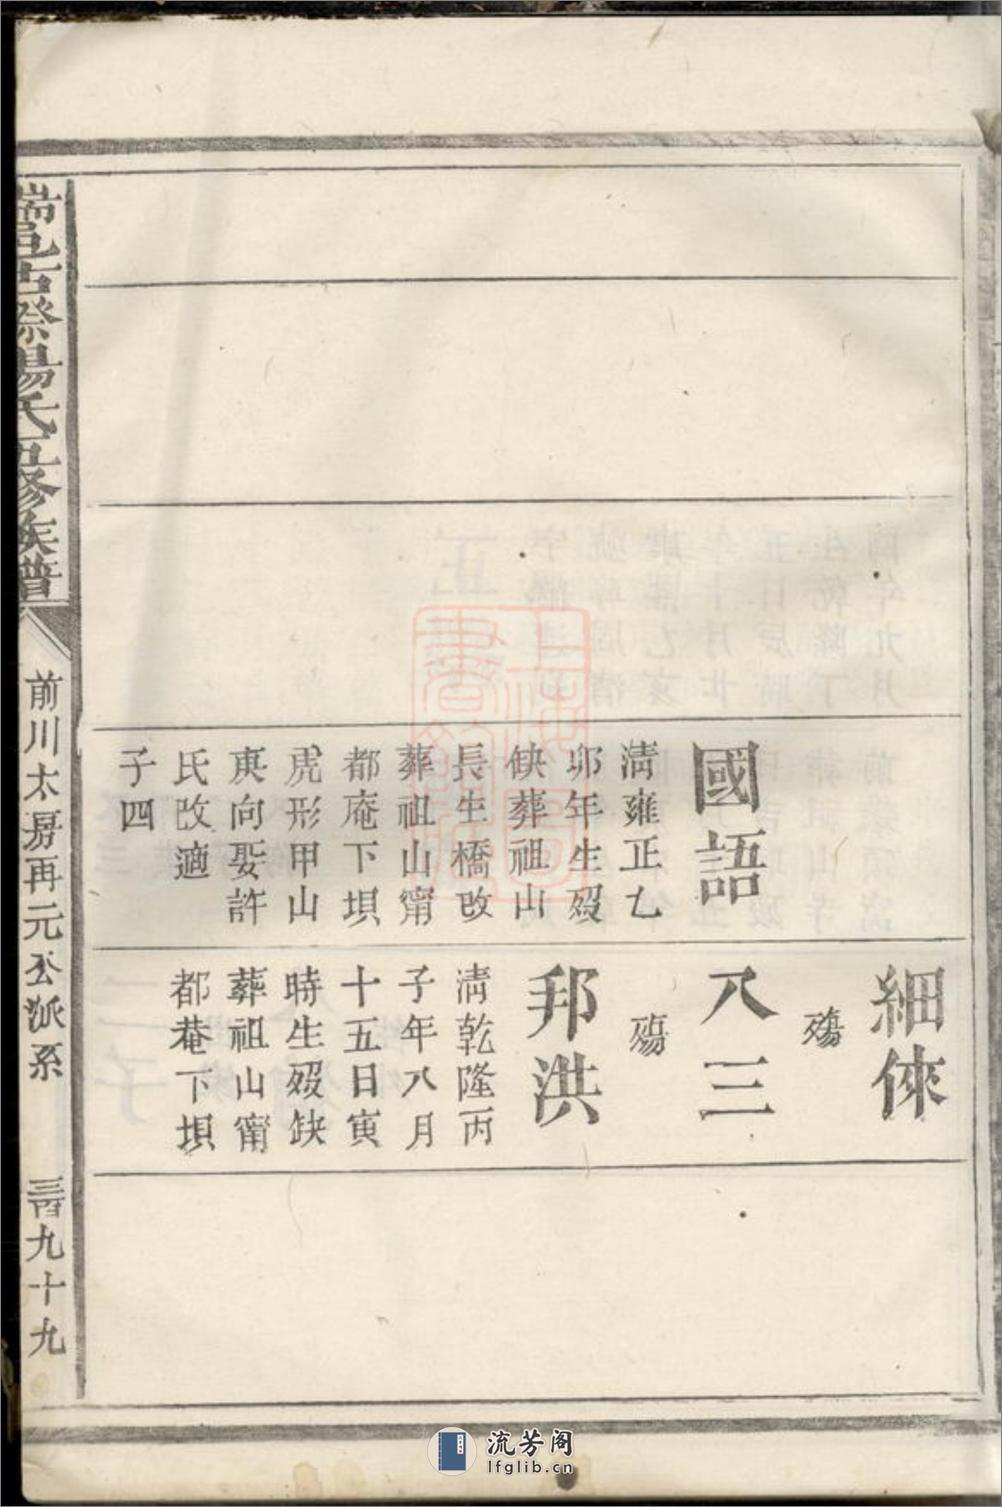 國語
淸雍正乙
卯年生歿
缺葬祖山
長生橋改
葬祖山甯
都庵下垻
虎形甲山
庚向娶許
氏改適
子四
細倈
殤
八三
殤
邦洪
淸乾隆丙
子年八月
十五日寅
時生歿缺
葬祖山甯
都菴下垻
氏五修族譜
前川太房再元公派系
三百九十九
流芳阁
lfglib.cn